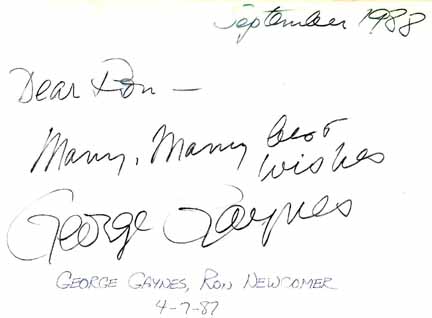 September 1988
Dear Ron —
Many, Many best
wishes
George Gaynes
GEORGE GAYNES, RON NEWCOMER
4-7-87